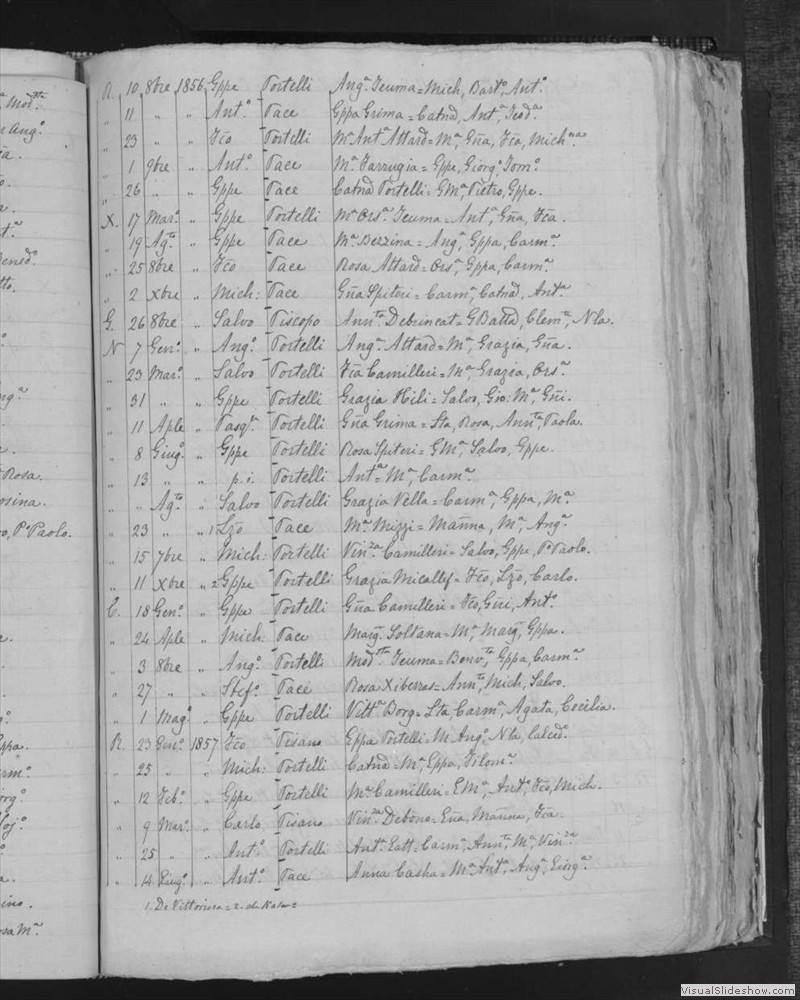 R. 10 8bre 1856 Gppe Portelli Angª Xeuma = Mich, Bartº, Antº.
„ 11 „ „ Antº. Pace Gppa Grima = Catnª, Antª, Teodª
„ 23 „ „ Fcõ Portelli Mª Antª Attard = Mª, Gña, Fca, Michna
„ 1 9bre „ Antº. Pace Mª Farrugia = Gppe, Giorgº, Tomº.
„ 26 „ „ Gppe Pace Catnª Portelli = GMª, Pietro, Gppe.
X. 17 Marº „ Gppe Portelli Mª Orsª Xeuma = Antª, Gña, Fca.
„ 19 Agto „ Gppe Pace Mª Bezzina = Angª, Gppa, Carmª
„ 25 8bre „ Fcõ Pace Rosa Attard = Orsª, Gppa, Carmª
„ 2 Xbre „ Mich: Pace Gña Spiteri = Carmª, Catnª, Antª
G. 26 8bre „ Salvo Piscopo Annta Debrincat = GBatta, Clemte, Nla.
N 7 Genº „ Angº. Portelli Angª Attard = Mª, Grazia, Gña.
„ 23 Marº „ Salvo Portelli Fca Camilleri = Mª, Grazia, Orsª
„ 31 „ „ Gppe Portelli Grazia Hili = Salvo, Gio: Mª, Gñi.
„ 11 Aple „ Pasqle Portelli Gña Grima = Sta, Rosa, Annta, Paola.
„ 8 Giugº „ Gppe Portelli Rosa Spiteri = GMª, Salvo, Gppe.
„ 13 „ „ p.i. Portelli Antª = Mª, Carmª
„ „ Agto „ Salvo Portelli Grazia Vella = Carmª, Gppa, Mª
„ 23 „ „ 1 Lzõ Pace Mª Mizzi = Mañna, Mª, Angª
„ 15 7bre „ Mich: Portelli Vinza Camilleri = Salvo, Gppe, Pº Paolo.
„ 11 Xbre „ 2 Gppe Portelli Grazia Micallef = Fcõ, Lzõ, Carlo.
C. 18 Genº „ Gppe Portelli Gña Camilleri = Fcõ, Gñi, Antº.
„ 24 Aple „ Mich: Pace Marg. Soltana = Mª, Marg, Gppa.
„ 3 8bre „ Angº. Portelli Modsta Xeuma = Benvta, Gppa, Carmª
„ 27 „ „ Stefº. Pace Rosa Xiberras = Annta, Mich, Salvo.
„ 1 Magº „ Gppe Portelli Vittª Borg = Sta, Carmª, Agata, Cecilia.
R. 23 Genº 1857 Fcõ Pisano Gppa Portelli = M. Angº, Nla, Calcedº.
„ 25 „ „ Mich: Portelli Catnª = Mª, Gppa, Filomª
„ 12 Febº „ Gppe Portelli Mª Camilleri = GMª, Antº, Fcõ, Mich.
„ 9 Marº „ Carlo Pisano Vinza Debono = Gña, Mañna, Fca.
„ 25 „ „ Antº. Portelli Antª Gatt = Carmª, Annta, Mª, Vinza
„ 14 Giugº „ Antº. Pace Anna Casha = Mª Antª, Angª, Giorgª
1. De Vittoriosa = 2. di
VisualSlideshow.com